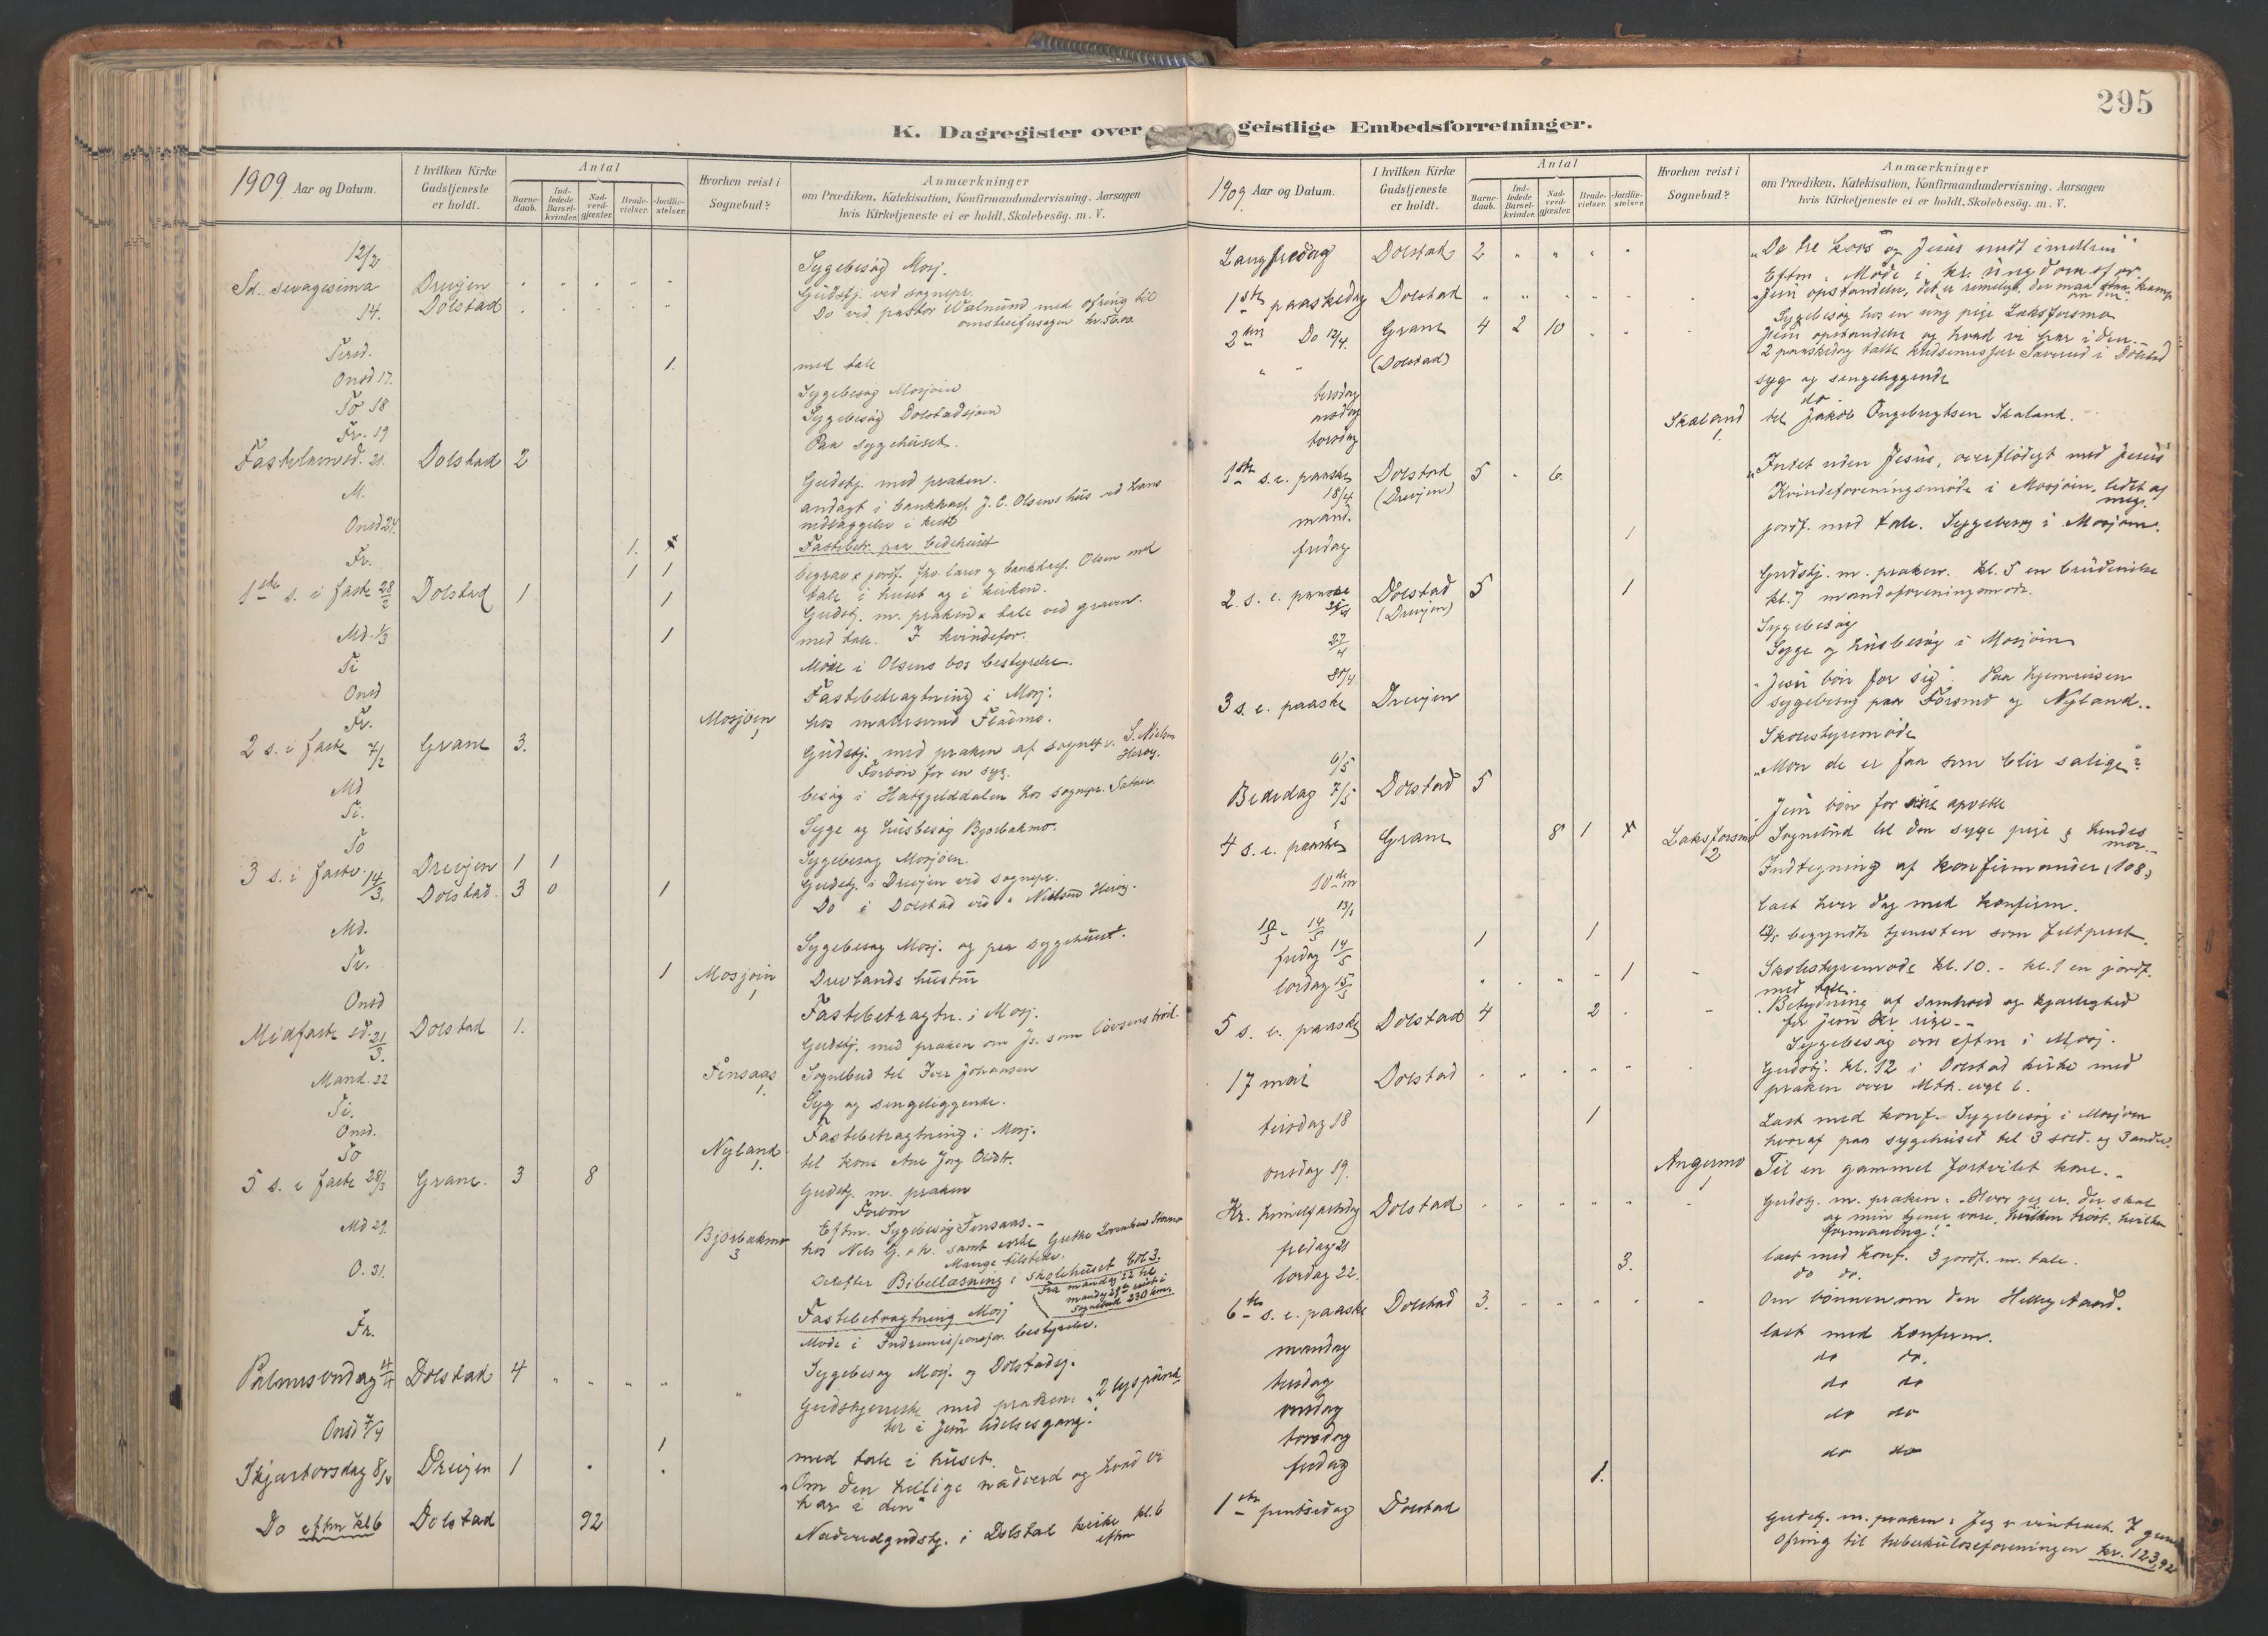 295
K. Dagregister over geistlige Embedsforretninger.
1909 Aar og Datum.
I hvilken Kirke Gudstjeneste er holdt.
Antal
Barnedaab.
Indledede Barselkvinder.
Nadverdgjæster.
Brudevielser.
Jordfæstelser.
Hvorhen reist i Sognebud?
Anmærkninger
om Prædiken, Katekisation, Konfirmandundervisning. Aarsagen
hvis Kirketjeneste ei er holdt. Skolebesög. m. V.
12/2 Sygebesøg Mosj.
Sd. sexagesima Drevjen Gudstj. ved sognepr.
14. Dolstad Do ved pastor Walnum med ofring til
kr. 56.00
Tirsd. 1. med tale
Onsd 17. Sygebesøg Mosjøen
To 18 Sygebesøg Dolstadsjøen
Fr. 19 Paa sygehuset.
Fastelavnsd. 21. Dolstad 2 Gudstj. med præken.
M. andagt i bankkass. J. C. Olsens hus ved hans
nedlæggelse i kiste
Onsd 24. 1. Fastebetr. paa bedehuset
Fr. 1 1 begrav
tale i huset og i kirken.
1ste s. i faste 28/2 Dolstad 1 1 Gudstj. m. præken & tale ved graven.
Md. 1/3 1 med tale. I kvindefor.
Ti Møde i Olsens bos bestyrelse.
Onsd Fastebetragtning i Mosj.
Fr. Mosjøen 1 hos
2 s. i faste 7/2 Grane 3. Gudstj. med præken af sognepr. S. Nielsen
Herøy.
Forbøn for en syg.
Md besøg i Hatfjelddalen hos sognepr.
Ti. Syge og husbesøg Bjorbakmo.
To Sygebesøg Mosjøen.
3 s. i faste 14/3. Drevjen 1 1 Gudstj. i Drevjen ved sognepr.
Dolstad. 3 0 1 Do i Dolstad ved Herøy.
Md. Sygebesøg Mosj. og paa sygehuset.
Ti. 1 Mosjøen 1 Drevlands hustru
Onsd Fastebetragtn. i Mosj.
Midfaste sd. 21/3. Dolstad 1. Gudstj. med præken om Js. som livsens brød.
Mand. 22 Finsaas 1. Sognebud til Iver Johansen
Ti. Syg og sengeliggende.
Onsd. Fastebetragtning i Mosj.
To Nyland 1. til kone Ane
5 s. i faste 28/3 Grane. 3 8 Gudstj. m. præken
Forbøn
Eftm. Sygebesøg Finsaas.
Md 29. Bjorbakmo 3 hos Nils G. samt enke Grethe
Mange tilstede.
Derefter Bibellæsning i skolehuset
Fra mandag 22 til
mandag 29de reist i
sognebud 230 km.
O. 31. Fastebetragtning Mosj
Fr. Møde i Indremisjonsfor. bestyrelse.
Sygebesøg Mosj. og Dolstadsj.
Palmesøndag 4/4 Dolstad 4 " " " " " Gudstjeneste med præken: "2 lyspunk-
ter i Jesu lidelsesgang."
Onsd 7/4 1 med tale i huset.
Skjærtorsdag 8/4 Drevjen 1 "Om den hellige nadverd og hvad vi
har i den"
Do eftm kl 6 Dolstad 92 Nadverdgudstj. i Dolstad kirke kl. 6
eftm
1909. Aar og Datum.
I hvilken Kirke Gudstjeneste er holdt.
Antal
Barnedaab.
Indledede Barselkvinder.
Nadverdgjæster.
Brudevielser.
Jordfæstelser.
Hvorhen reist i Sognebud?
Anmærkninger
om Prædiken, Katekisation, Konfirmandundervisning. Aarsagen
hvis Kirketjeneste ei er holdt. Skolebesög. m. V.
Langfredag Dolstad 2 " " " " "De tre kors og Jesus midt imellem"
Eftm. Møde i kr. ungdomsfor.
1ste paaskedag Dolstad " " " " " Jesu opstandelse, det er rimeligt, der maa staa kamp
om den.
Sygebesøg hos en ung pige Laksforsmo
2den Do 12/4. Grane 4 2 10 Jesu opstandelse og hvad vi har i den.
" " (Dolstad) 2 paaskedag talte i Dolstad
tirsdag syg og sengeliggende
onsdag do.
torsdag Skaland 1. til Jakob Ingebrigtsen Skaland.
1ste s. e. paaske 18/4 Dolstad 5 6. "Intet uden Jesus, overflødigt med Jesus"
(Drevjen) Kvindeforeningsmøde i Mosjøen, ledet af
mig.
mand.
fredag 1 jordf. med tale. Sygebesøg i Mosjøen.
2. s. e. paaske Dolstad 5 1 Gudstj. m. præken. kl. 5 en brudevielse
(Drevjen) kl. 7 mandsforeningsmøde.
27/4 Sygebesøg
Syge og husbesøg i Mosjøen
3 s. e. paaske Drevjen "Jesu bøn for sig". Paa hjemreisen
sygebesøg paa Forsmo og Nyland.
6/5 Skolestyremøde
Bededag 7/5 Dolstad 5 "Mon de er faa som blir salige"?
4 s. e. paaske Grane 8 1 Laksforsmo 2 Jesu bøn for sine apostle
Sognebud til den syge pige & hendes
mor.
10de Indtegning af konfirmander (108)
læst hver dag med konfirm.
10/5 - 14/5 begyndte tjenesten som feltprest.
fredag 14/5 1 1
lørdag 15/5 1 Skolestyremøde kl. 10. - kl. 1 en jordf.
med tale.
5 s. e. paaske Dolstad 4 2 Betydning af samhold og kjærlighed
for Jesu Kr. rige.
Sygebesøg om eftm i Mosj.
17 mai Dolstad Gudstj. kl. 12 i Dolstad kirke med
præken over Mth.
tirsdag 18 1 Læst med konf. Sygebesøg i Mosjøen
hvoraf paa sygehuset til 3 sold. og 3 andre.
onsdag 19. Angermo 1 Til en gammel fortvilet kone.
Kr. himmelfartsdag Dolstad Gudstj. m. præken: "Hvor jeg er, der skal
og min tjener være, hvilken trøst, hvilken
formaning!"
fredag 21 3. læst med konf. 3 jordf. m. tale.
lørdag 22. do do.
6te s. e. paaske Dolstad 3. Om bønnen om den Hellig Aand.
mandag læst med konfirm.
tirsdag do do.
onsdag do do
torsdag do do
fredag 1. do do
1ste pintsedag Dolstad Gudstj. m. præken: Jeg er vintræet. 7
Ofring til tuberkuloseforeningen kr. 123,92